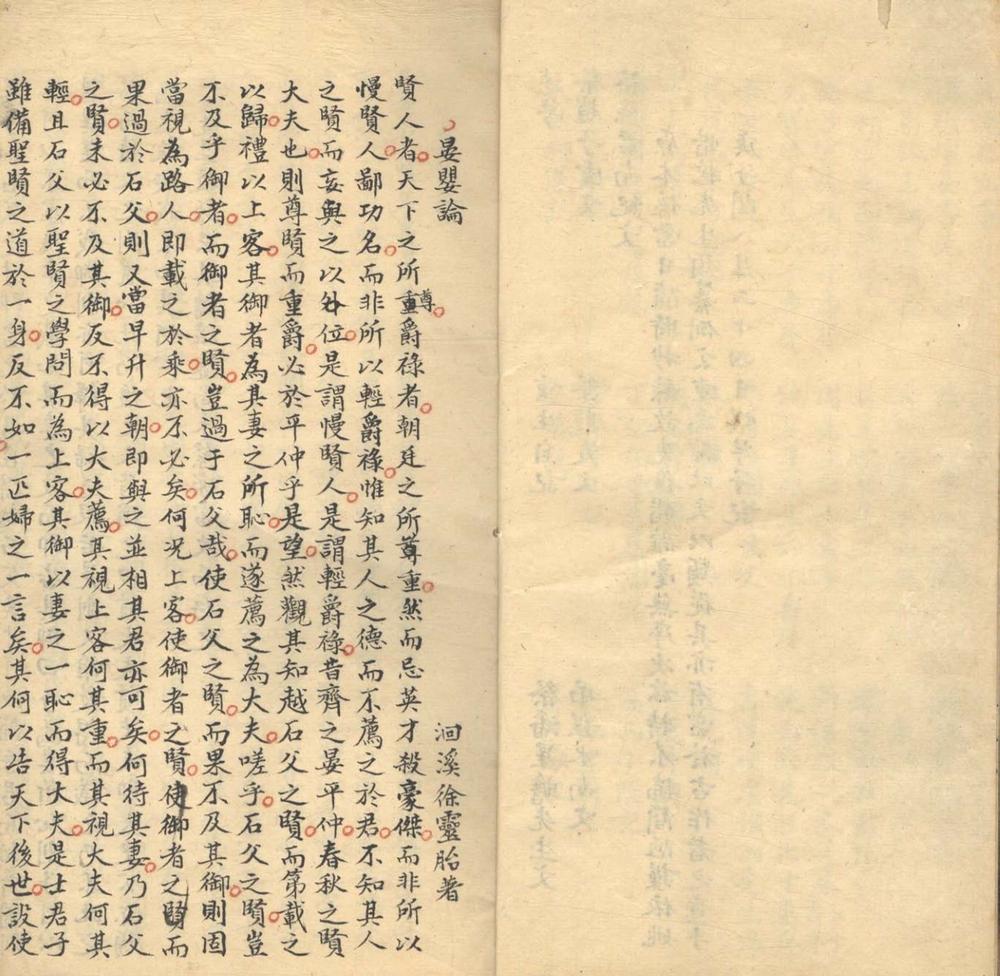 晏嬰論
洄溪徐靈胎著
賢人者天下之所重爵祿者朝廷之所尊重然而忌英才殺豪傑而非所以
尊
慢賢人鄙功名而非所以輕爵祿惟知其人之德而不薦之於君不知其人
之賢而妄與之以外位是謂慢賢人是謂輕爵祿昔齊之晏平仲春秋之賢
大夫也則尊賢而重爵必於平仲乎是望然觀其知越石父之賢而第載之
以歸禮以上客其御者為其妻之所恥而遂薦之為大夫嗟乎石父之賢豈
不及乎御者而御者之賢豈過于石父哉使石父之賢而果不及其御則固
當視為路人即載之於乘亦不必矣何況上客使御者之賢使御者之賢而
果過於石父則又當早升之朝即與之並相其君亦可矣何待其妻乃石父
之賢未必不及其御反不得以大夫薦其視上客何其重而其視大夫何其
輕且石父以聖賢之學問而為上客其御以妻之一恥而得大夫是士君子
雖備聖賢之道於一身反不如一匹婦之一言矣其何以告天下後世設使